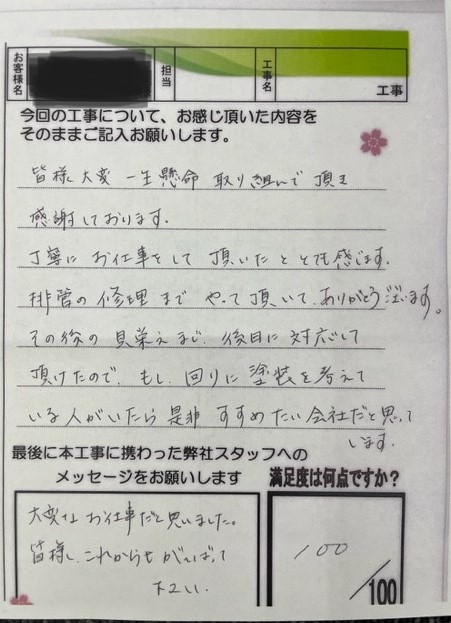 お客様名 担当 工事名 工事
今回の工事について、お感じ頂いた内容を
そのままご記入お願いします。
皆様大変一生懸命取り組んで頂き
感謝しております。
丁寧にお仕事をして頂いたととても感じます。
排管の修理までやって頂いて、ありがとう ございます。
その後の見栄えまで、 に対応して
頂けたので、もし、回りに塗装を考えて
いる人がいたら是非すすめたい会社だと思って
います。
最後に本工事に携わった弊社スタッフへの
メッセージをお願いします
満足度は何点ですか?
大変なお仕事だと思いました。
皆様、これからもがんばって
下さい。
100
/100